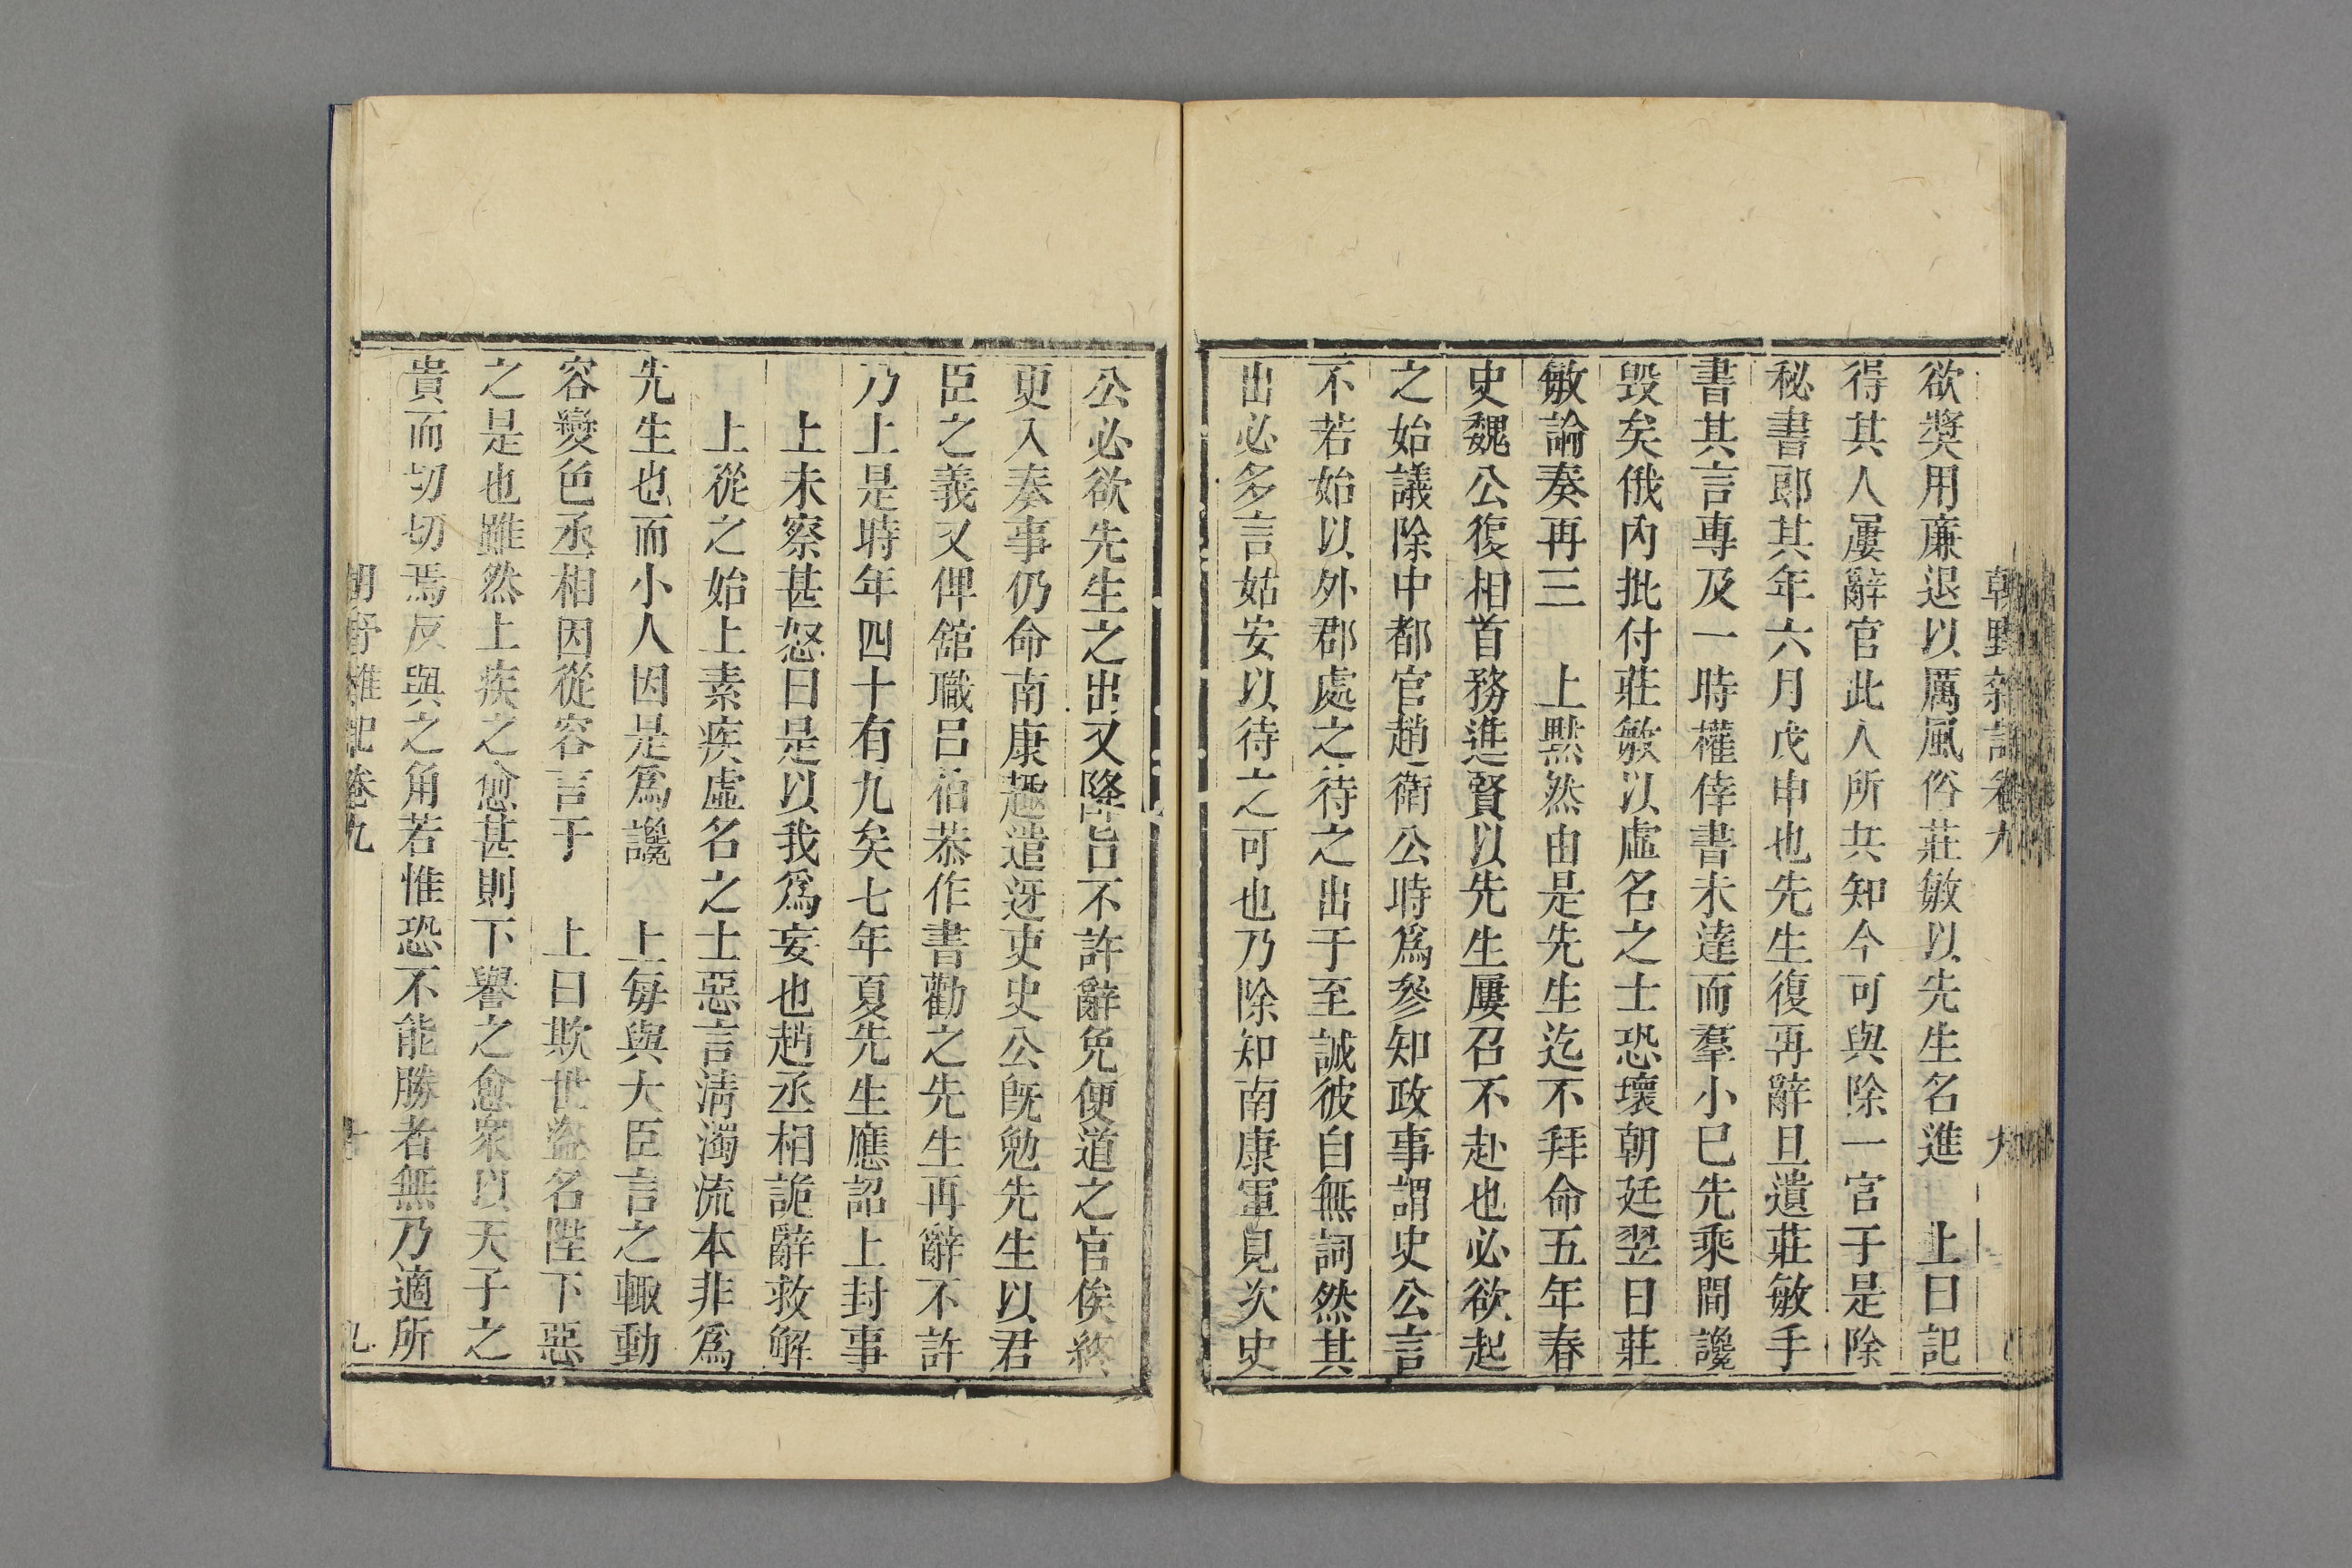 欲獎用廉退以厲風俗莊敏以先生名進　上曰記
得其人屢辭官此人所共知今可與除一官于是除
秘書郎其年六月戊申也先生復再辭且遺莊敏手
書其言專及一時權倖書未達而羣小巳先乘間讒
毀矣俄內批付莊敏以虛名之士恐壞朝廷翌日莊
敏論奏再三　上黙然由是先生迄不拜命五年春
史魏公復相首務進賢以先生屢召不赴也必欲起
之始議除中都官趙衛公時爲參知政事謂史公言
不若始以外郡處之待之出于至誠彼自無詞然其
出必多言姑安以待之可也乃除知南康軍見次史
公必欲先生之出又降旨不許辭免便道之官俟終
更入奏事仍命南康趣遣迓吏史公旣勉先生以君
臣之義又俾舘職呂伯恭作書勸之先生再辭不許
乃上是時年四十有九矣七年夏先生應詔上封事
上未察甚怒曰是以我爲妄也趙丞相詭辭救解
上從之始上素疾虛名之士惡言淸濁流本非爲
先生也而小人因是爲讒　上每與大臣言之輙動
容變色丞相因從容言于　上曰欺世盜名陛下惡
之是也雖然上疾之愈甚則下譽之愈衆以天子之
貴而切切焉反與之角若惟恐不能勝者無乃適所
朝野雜記卷九　十　九